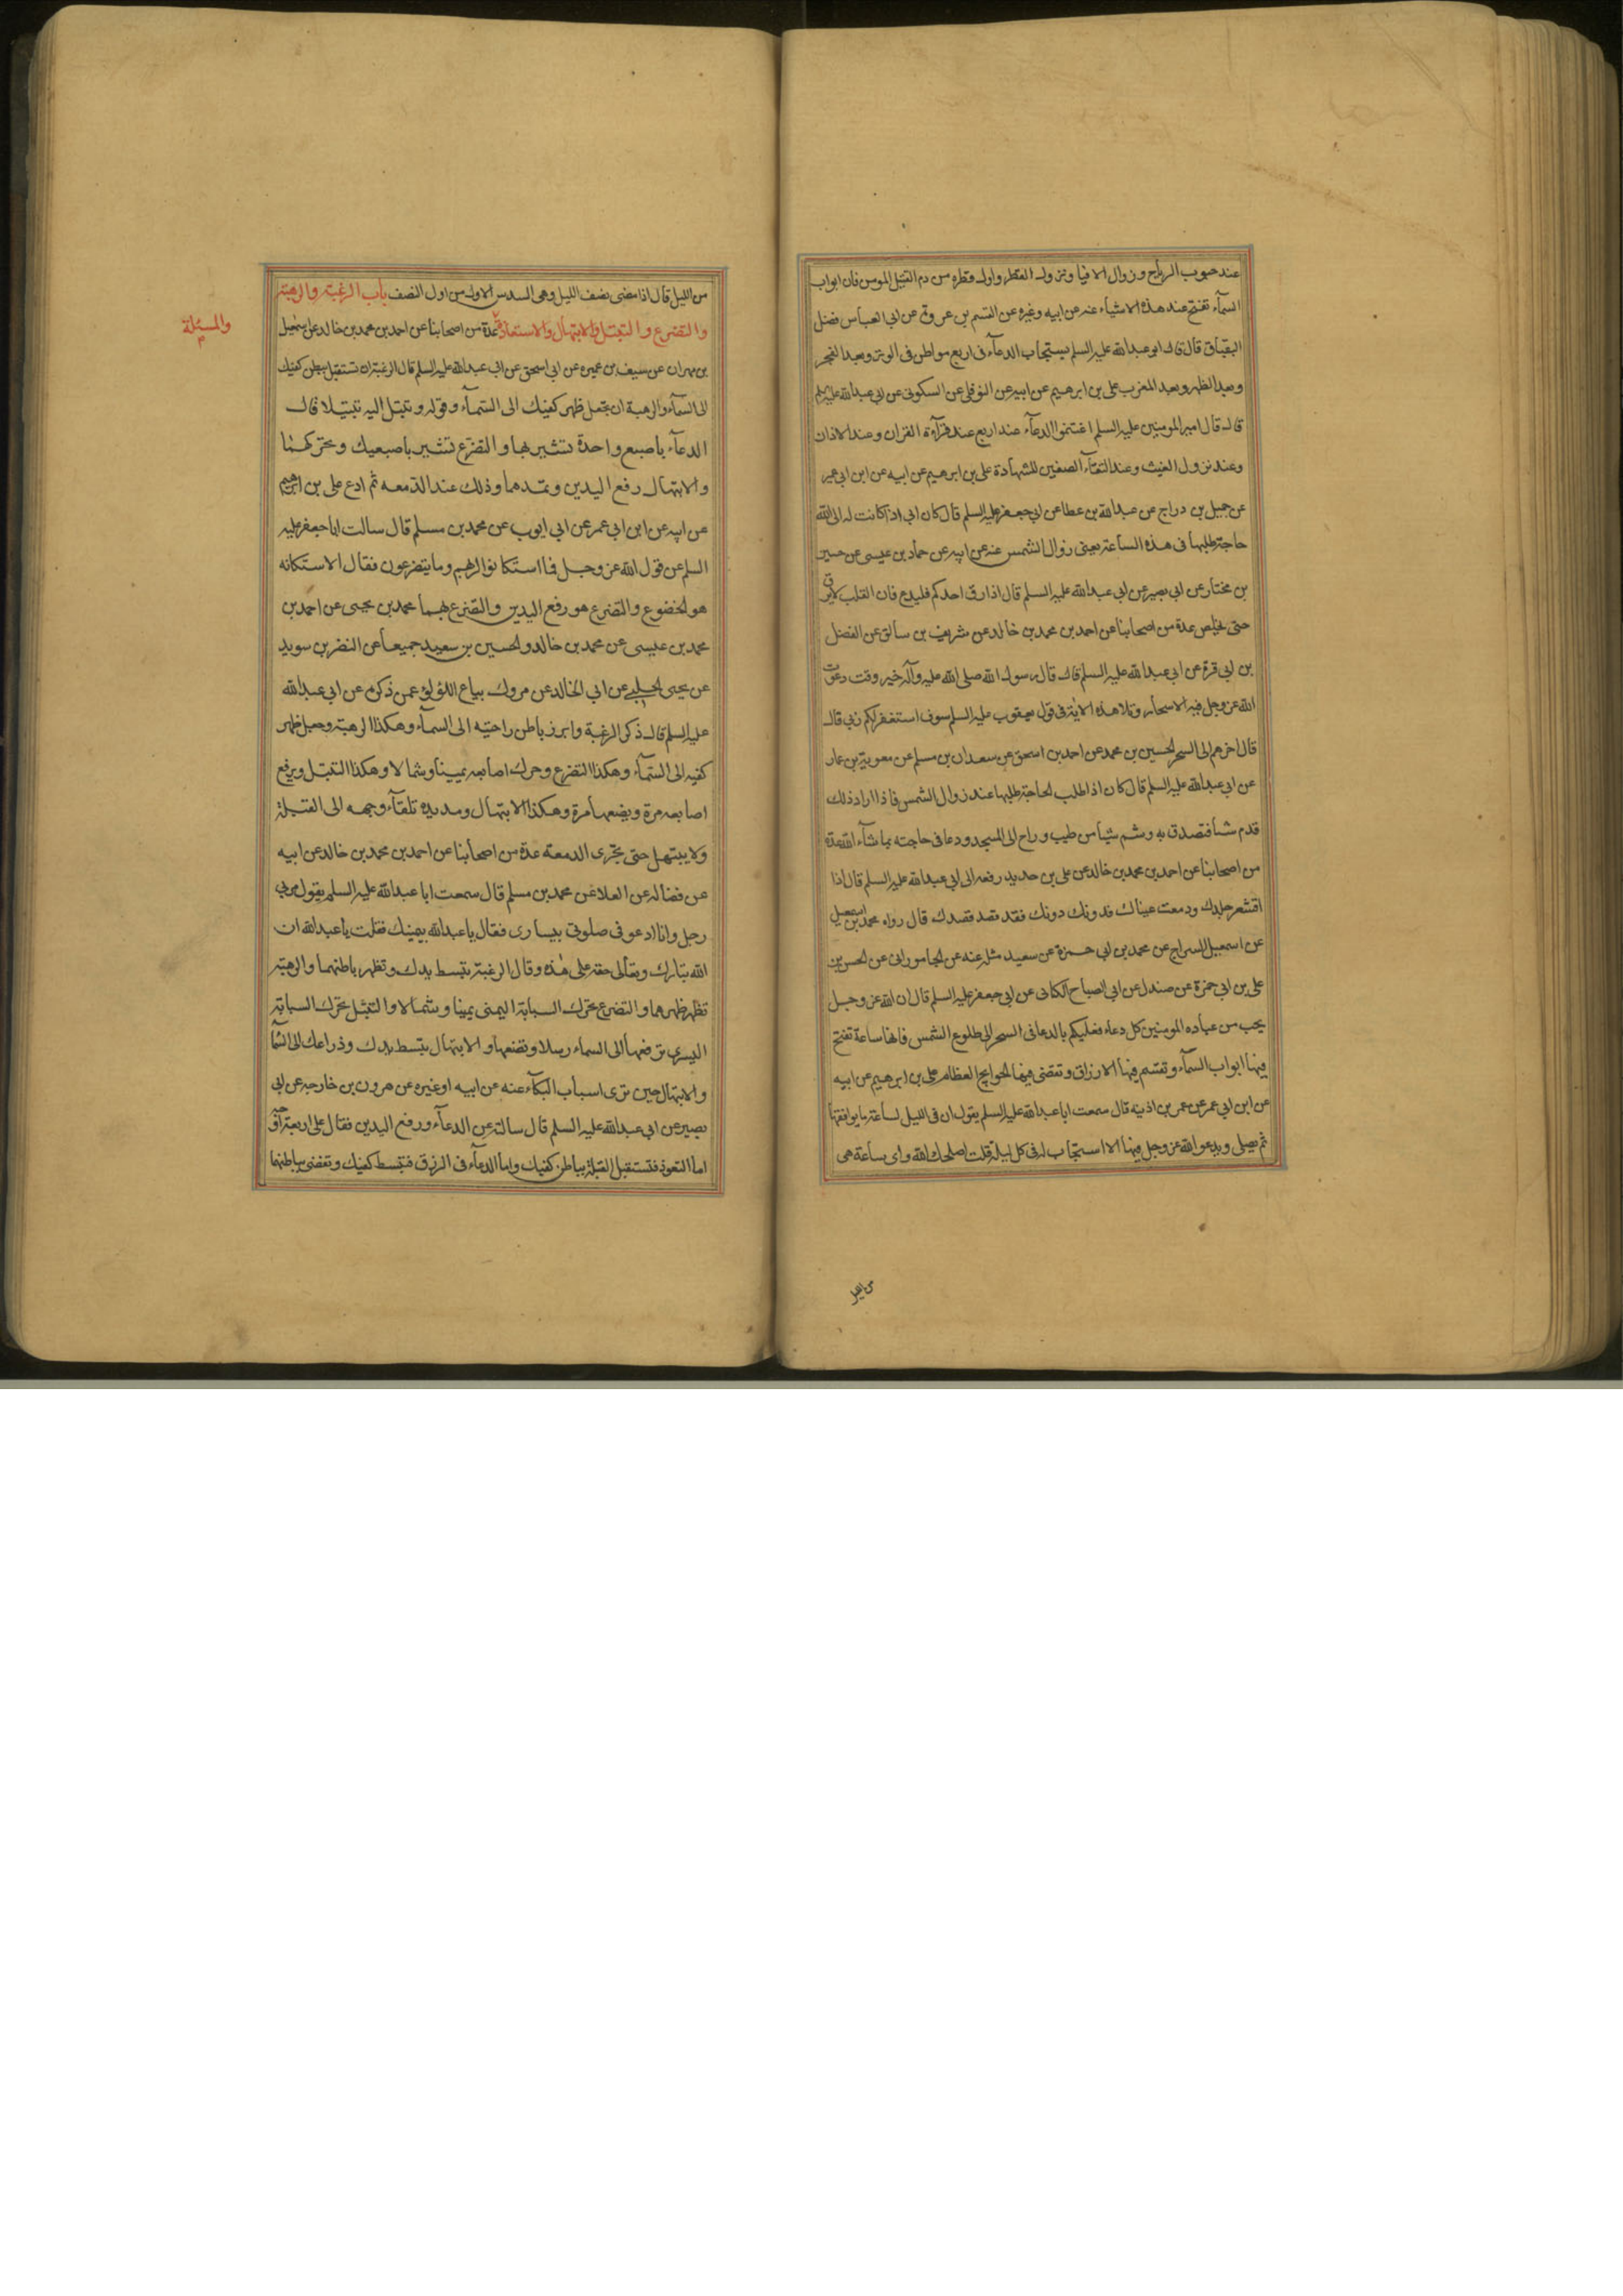 عند هبوب الرياح و زوال الافيا و نزول القطر و اول قطره من دم القتيل المومن فان ابواب
السمآء تفتح عند هذه الاشيآء عنه عن ابيه وغيره عن القسم بن عروة عن ابى العباس فضل
البقباق قال قال ابو عبد الله عليه السلم يستجاب الدعآء فى اربع مواطن فى الوتر و بعد الفجر
و بعد الظهر و بعد المغرب على بن ابرهيم عن ابيه عن النوفلى عن السكونى عن ابى عبد الله عليه السلم
قال قال امير المومنين عليه السلم اغتنموا الدعآء عند اربع عند قرآءة القران و عند الاذان
و عند نزول الغيث و عند التقآء الصفين للشهادة على بن ابرهيم عن ابيه عن ابن ابى عمير
عن جميل بن دراج عن عبد الله بن عطا عن ابى جعفر عليه السلم قال كان ابى اذا كانت له الى الله
حاجة طلبها فى هذه الساعة يعنى زوال الشمس عنه عن ابيه عن حماد بن عيسى عن حسين
بن مختار عن ابى بصير عن ابى عبد الله عليه السلم قال اذا رق احدكم فليدع فان القلب لا يرق
حتى يخلص عدة من اصحابنا عن احمد بن محمد بن خالد عن شريف بن سابق عن الفضل
بن ابى قرة عن ابى عبد الله عليه السلم قال قال رسول الله صلى الله عليه وآله خير وقت دعوت
الله عز وجل فيه الاسحار و تلا هذه الاية فى قول يعقوب عليه السلم سوف استغفر لكم ربى قال
قال اخرهم الى السحر الحسين بن محمد عن احمد بن اسحق عن سعدان بن مسلم عن معوية بن عمار
عن ابى عبد الله عليه السلم قال كان اذا طلب الحاجة طلبها عند زوال الشمس فاذا اراد ذلك
قدم شيأ فتصدق به و شم شيأ من طيب و راح الى المسجد و دعا فى حاجته بما شآء الله عدة
من اصحابنا عن احمد بن محمد بن خالد عن على بن حديد رفعه الى ابى عبد الله عليه السلم قال اذا
اقشعر جلدك و دمعت عيناك فدونك دونك فقد قصد قصدك قال رواه محمد بن اسمعيل
عن اسمعيل السراج عن محمد بن ابى حمزة عن سعيد مثله عنه عن الجامورانى عن الحسن بن
على بن ابى حمزة عن صندل عن ابى الصباح الكنانى عن ابى جعفر عليه السلم قال ان الله عز وجل
يحب من عباده المومنين كل دعاء فعليكم بالدعا فى السحر الى طلوع الشمس فانها ساعة تفتح
فيها ابواب السمآء و تقسم فيها الارزاق و تقضى فيها الحوايج العظام على بن ابرهيم عن ابيه
عن ابن ابى عمر عن عمر بن اذينه قال سمعت ابا عبد الله عليه السلم يقول ان فى الليل لساعة ما يوافقها
ثم يصلى و يدعو الله عز وجل فيها الا استجاب له فى كل ليلة قلت اصلحك الله و اى ساعة هى
من الليل
من الليل قال اذا مضى نصف الليل وهى السدس الاول من اول النصف باب الرغبة و الرهبة
و التضرع و التبتل و الابتهال و الاستعاذة عدة من اصحابنا عن احمد بن محمد بن خالد عن اسمعيل
والمسئلة
بن مهران عن سيف بن عميره عن ابى اسحق عن ابى عبد الله عليه السلم قال الرغبة ان تستقبل ببطن كفيك
الى السمآء و الرهبة ان تجعل ظهر كفيك الى السمآء و قوله و تبتل اليه تبتيلا قال
الدعآء باصبع واحدة تشير بها و التضرع تشير باصبعيك و تحركهما
و الابتهال رفع اليدين و تمدهما و ذلك عند الدمعه ثم ادع على بن ابرهيم
عن ابيه عن ابن ابى عمر عن ابى ايوب عن محمد بن مسلم قال سالت ابا جعفر عليه
السلم عن قول الله عز وجل فما استكانوا لربهم وما يتضرعون فقال الاستكانه
هو الخضوع و التضرع هو رفع اليدين و التضرع بهما محمد بن يحيى عن احمد بن
محمد بن عيسى عن محمد بن خالد و الحسين بن سعيد جميعا عن النضر بن سويد
عن يحيى الحلبى عن ابى الخالد عن مروك بياع اللؤلؤ عمن ذكره عن ابى عبد الله
عليه السلم قال ذكر الرغبة و ابرز باطن راحتيه الى السمآء و هكذا الرهبة و جعل ظهر
كفيه الى السمآء و هكذا التضرع و حرك اصابعه يمينا و شمالا و هكذا التبتل و يرفع
اصابعه مرة و يضعها مرة و هكذا الابتهال و مد يده تلقآء وجهه الى القبلة
ولا يبتهل حتى تجرى الدمعة عدة من اصحابنا عن احمد بن محمد بن خالد عن ابيه
عن فضاله عن العلا عن محمد بن مسلم قال سمعت ابا عبد الله عليه السلم يقول مر بى
رجل و انا ادعو فى صلوتى بيسارى فقال يا عبد الله بيمينك فقلت يا عبد الله ان
الله تبارك و تعالى حقه على هذه و قال الرغبة تبسط يدك و تظهر باطنهما و الرهبة
تظهر ظهرهما و التضرع تحرك السبابة اليمنى يمينا و شمالا و التبتل تحرك السبابة
اليسرى ترفعها الى السماء رسلا و تضعها و الابتهال تبسط يدك و ذراعك الى السمآ
و الابتهال حين ترى اسباب البكآء عنه عن ابيه او غيره عن هرون بن خارجه عن ابى
بصير عن ابى عبد الله عليه السلم قال سالته عن الدعآء و رفع اليدين فقال على اربعة اوجه
اما التعوذ فتستقبل القبلة بباطن كفيك و اما الدعآء فى الرزق فتبسط كفيك و تفضى بباطنهما